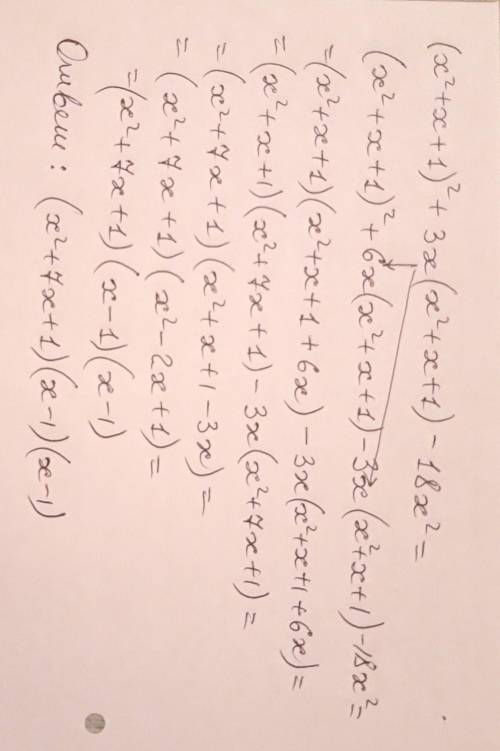 (x²+x+1)²+3x(x²+x+1)-18x²=
(x²+x+1)²+6x(x²+x+1)-3x(x²+x+1)-18x²=
=(x²+x+1)(x²+x+1+6x)-3x(x²+x+1+6x)=
=(x²+x+1)(x²+7x+1)-3x(x²+7x+1)=
=(x²+7x+1)(x²+x+1-3x)=
=(x²+7x+1)(x²-2x+1)=
=(x²+7x+1)(x-1)(x-1)
Ответ: (x²+7x+1)(x-1)(x-1)